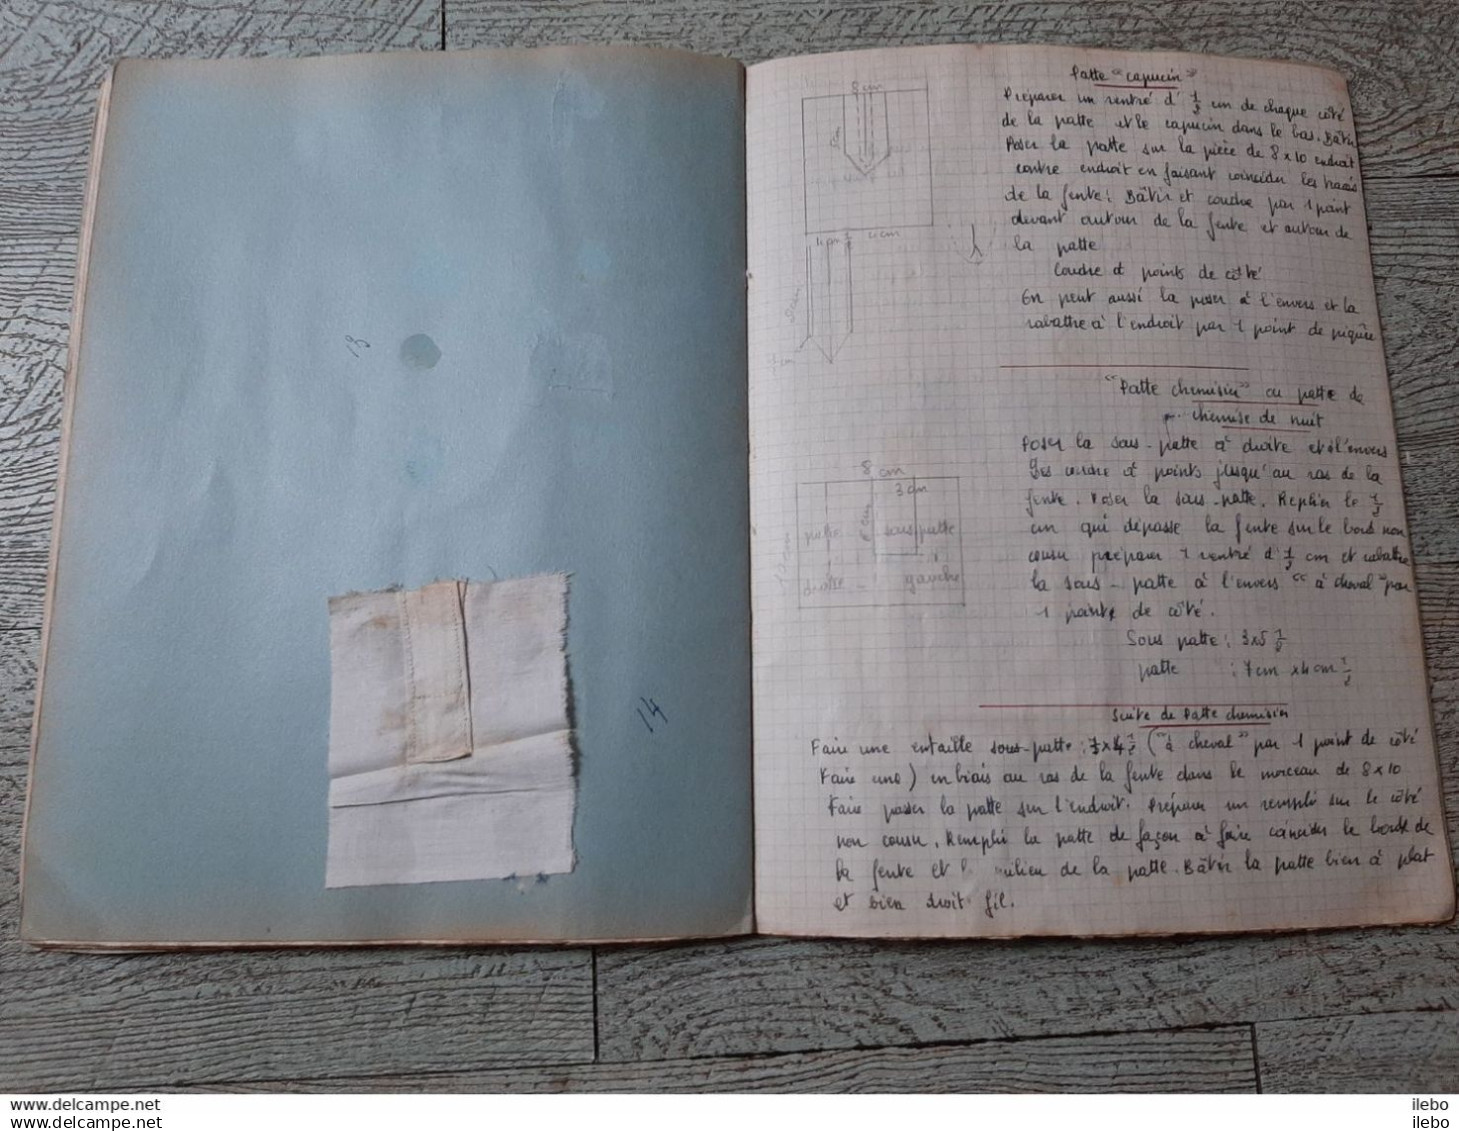 13
14
Patte "capucin"
Préparer un rentré d' 1/2 cm de chaque côté
de la patte et le capucin dans le bas. Bâtir
Poser la patte sur la pièce de 8x10 endroit
contre endroit en faisant coïncider les tracés
de la fente. Bâtir et coudre par 1 point
devant autour de la fente et autour de
la patte
Coudre à points de côté
On peut aussi la poser à l'envers et la
rabattre à l'endroit par 1 point de piqûre
8 cm
"Patte chemisier" ou patte de
chemise de nuit
Poser la sous-patte à droite et à l'envers
Les coudre à points jusqu'au ras de la
fente. Poser la sous-patte. Replier le 1/2
cm qui dépasse la fente sur le bord non
cousu préparer 1 rentré d'1/2 cm et rabattre
la sous-patte à l'envers "à cheval" par
1 point de côté.
Sous patte : 3x5 1/2
patte : 7cm x4cm 1/2
8 cm
3 cm
patte
sous patte
droite
gauche
10 cm
Suite de Patte chemisier
Faire une entaille sous-patte : x 4 1/2 ("à cheval" par 1 point de côté
Faire une) en biais au ras de la fente dans le morceau de 8x10
Faire passer la patte sur l'endroit. Préparer un rempli sur le côté
non cousu. Remplié la patte de façon à faire coïncider le bord de
la fente et l milieu de la patte. Bâtir la patte bien à plat
et bien droit fil.
ilebo
ilebo
www.delcampe.net
www.delcampe.net